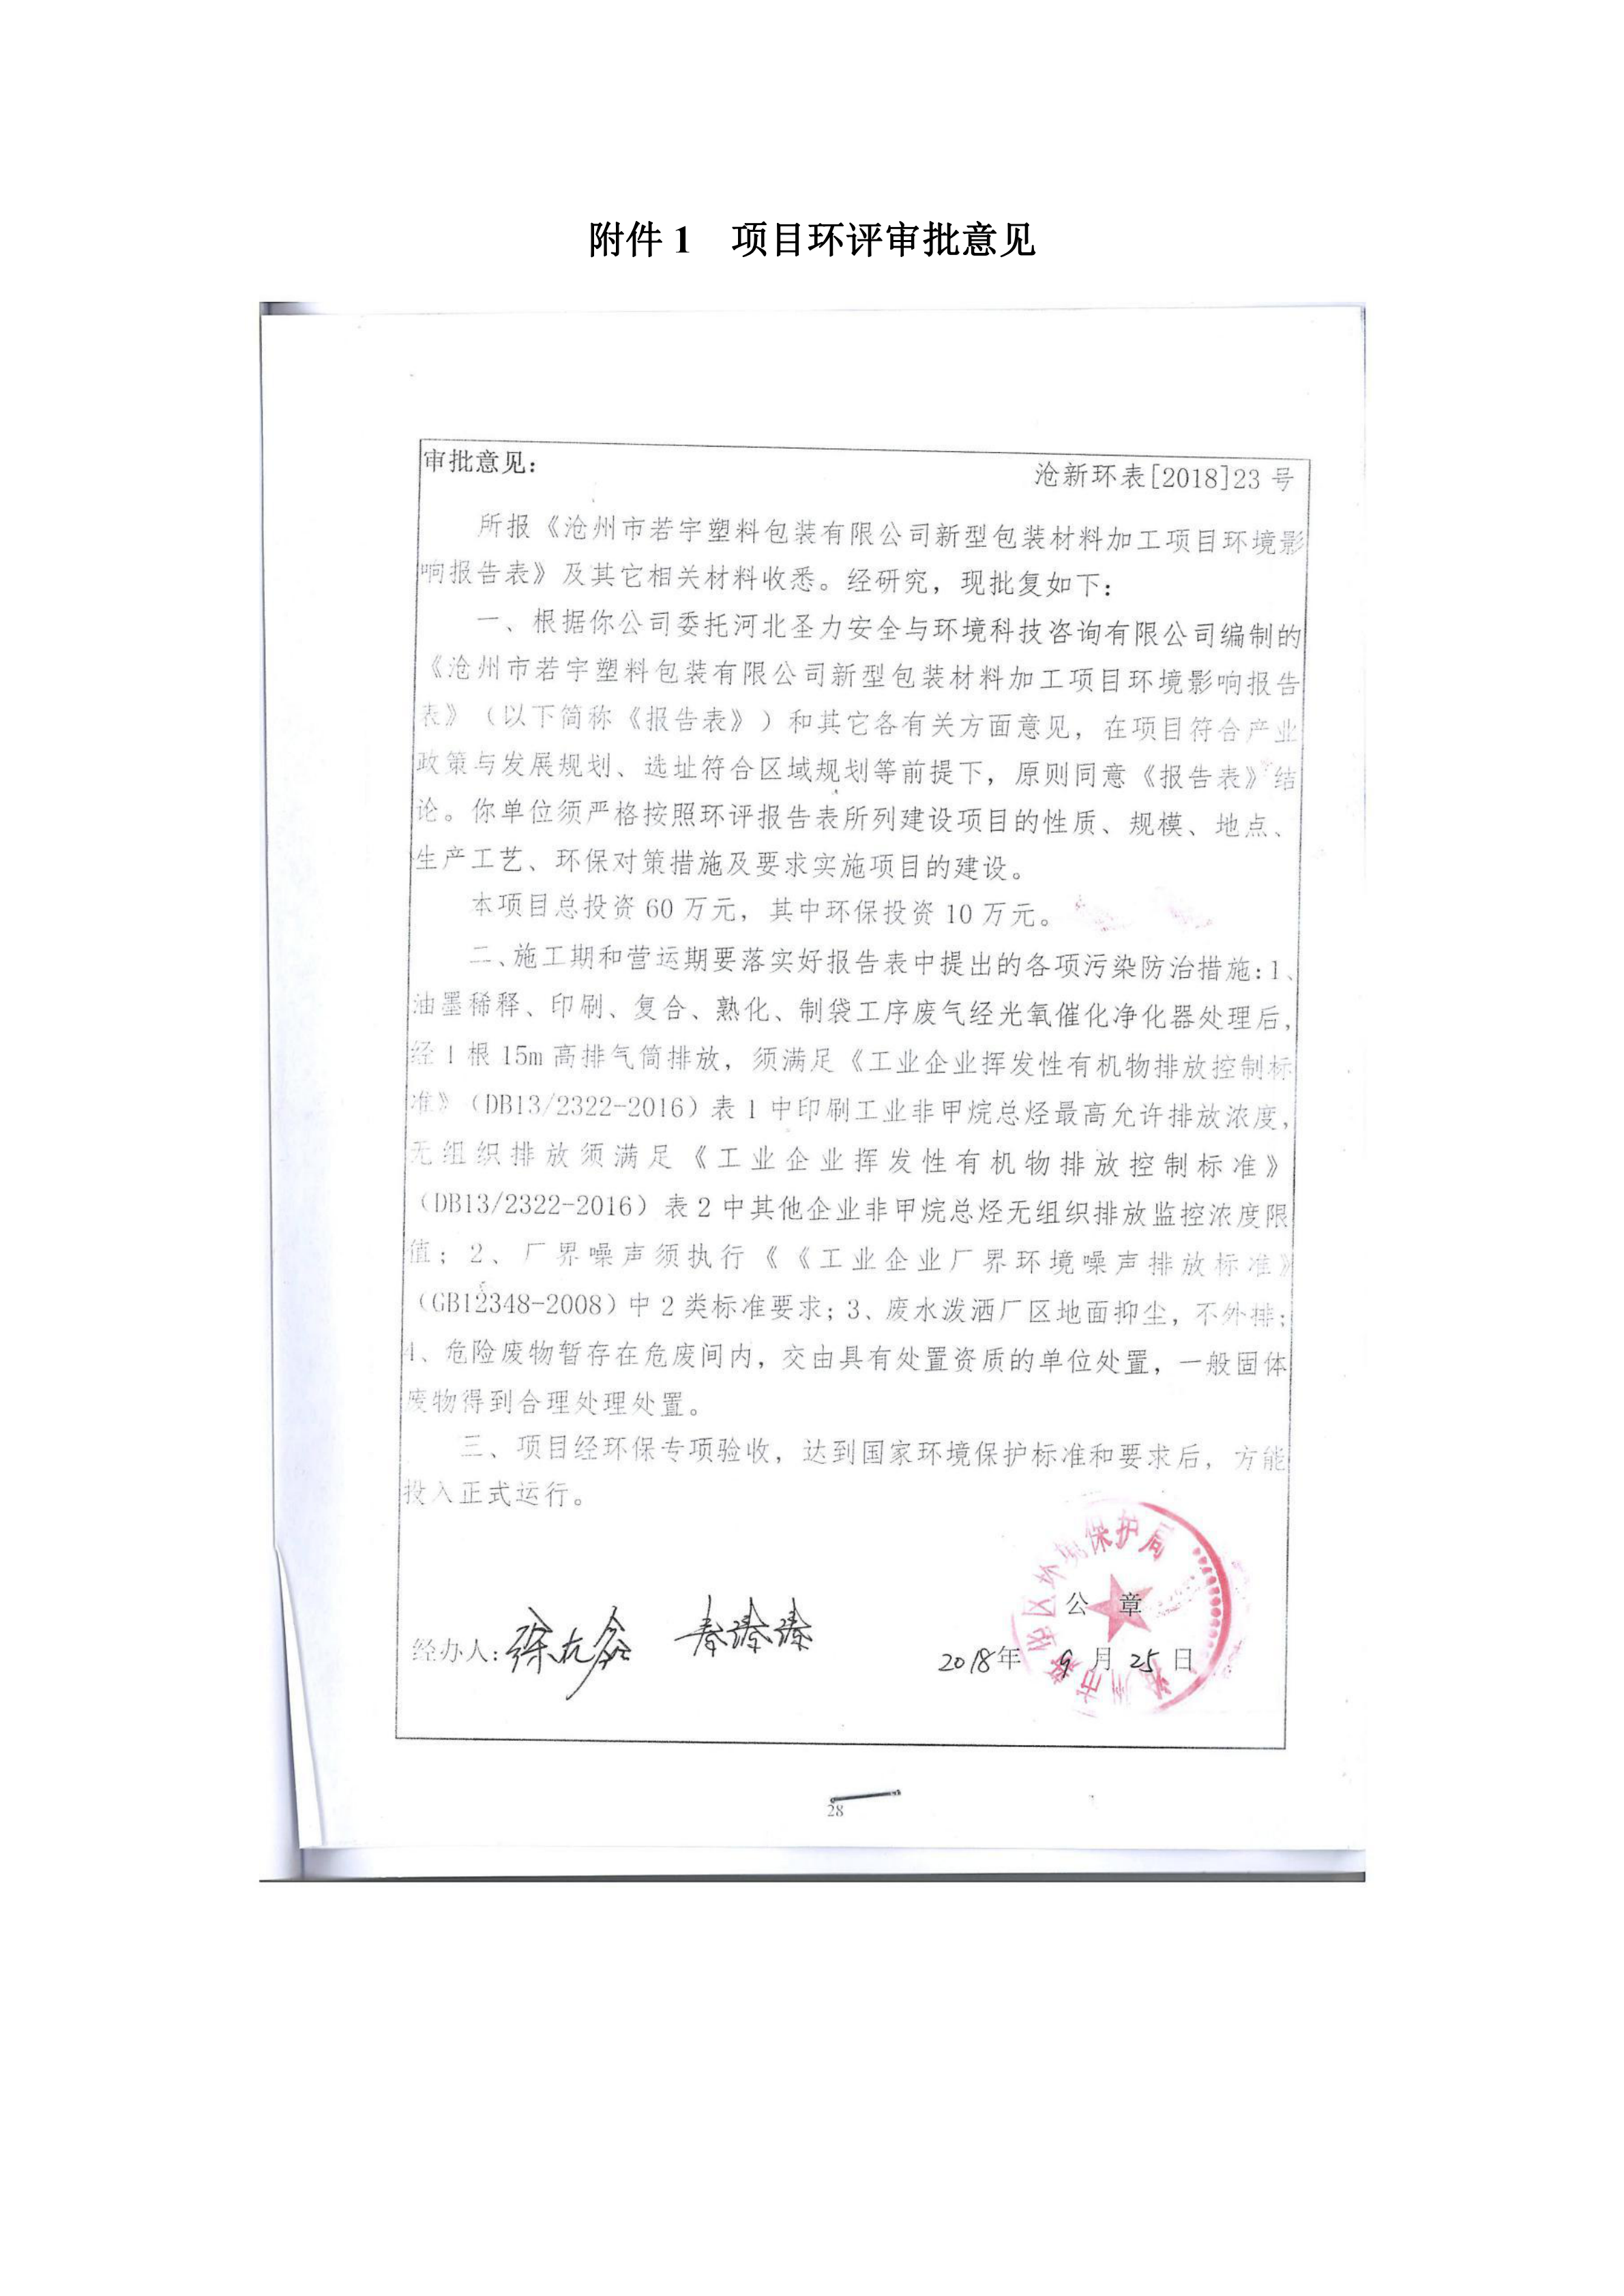 附件 1 项目环评审批意见
审批意见：
沧新环表[2018]23 号
所报《沧州市若宇塑料包装有限公司新型包装材料加工项目环境影
响报告表》及其它相关材料收悉。经研究，现批复如下：
一、根据你公司委托河北圣力安全与环境科技咨询有限公司编制的
《沧州市若宇塑料包装有限公司新型包装材料加工项目环境影响报告
表》（以下简称《报告表》）和其它各有关方面意见，在项目符合产业
政策与发展规划、选址符合区域规划等前提下，原则同意《报告表》结
论。你单位须严格按照环评报告表所列建设项目的性质、规模、地点、
生产工艺、环保对策措施及要求实施项目的建设。
本项目总投资 60 万元，其中环保投资 10 万元。
二、施工期和营运期要落实好报告表中提出的各项污染防治措施：1、
油墨稀释、印刷、复合、熟化、制袋工序废气经光氧催化净化器处理后，
经 1 根 15m 高排气筒排放，须满足《工业企业挥发性有机物排放控制标
准》（DB13/2322-2016）表 1 中印刷工业非甲烷总烃最高允许排放浓度，
无组织排放须满足《工业企业挥发性有机物排放控制标准》
（DB13/2322-2016）表 2 中其他企业非甲烷总烃无组织排放监控浓度限
值；2、厂界噪声须执行《《工业企业厂界环境噪声排放标准》
（GB12348-2008）中 2 类标准要求；3、废水泼洒厂区地面抑尘，不外排；
4、危险废物暂存在危废间内，交由具有处置资质的单位处置，一般固体
废物得到合理处理处置。
三、项目经环保专项验收，达到国家环境保护标准和要求后，方能
投入正式运行。
区环境保护局
公 章
经办人：
2018年 9 月 25 日
28